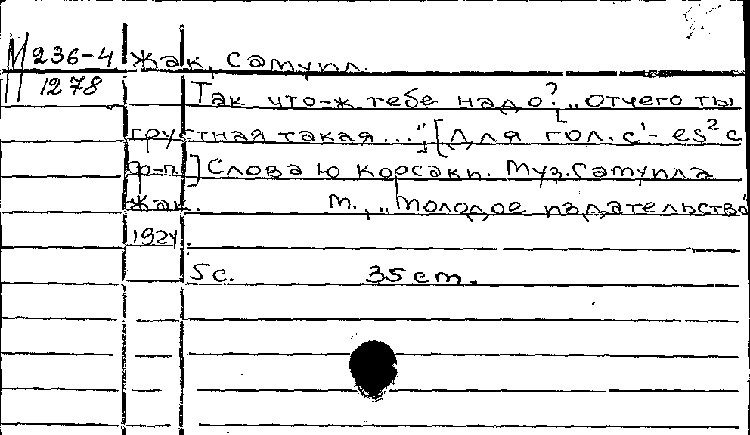 М 236-4 Жак, Самуил.
1278 Так что-ж тебе надо? [„Отчего ты
грустная такая...“; [Для гол. c¹- es² с
ф-п.] Слова Ю Корсаки. Муз. Самуила
Жак. М., „Молодое издательство“
1924.
5 с. 35 cm.